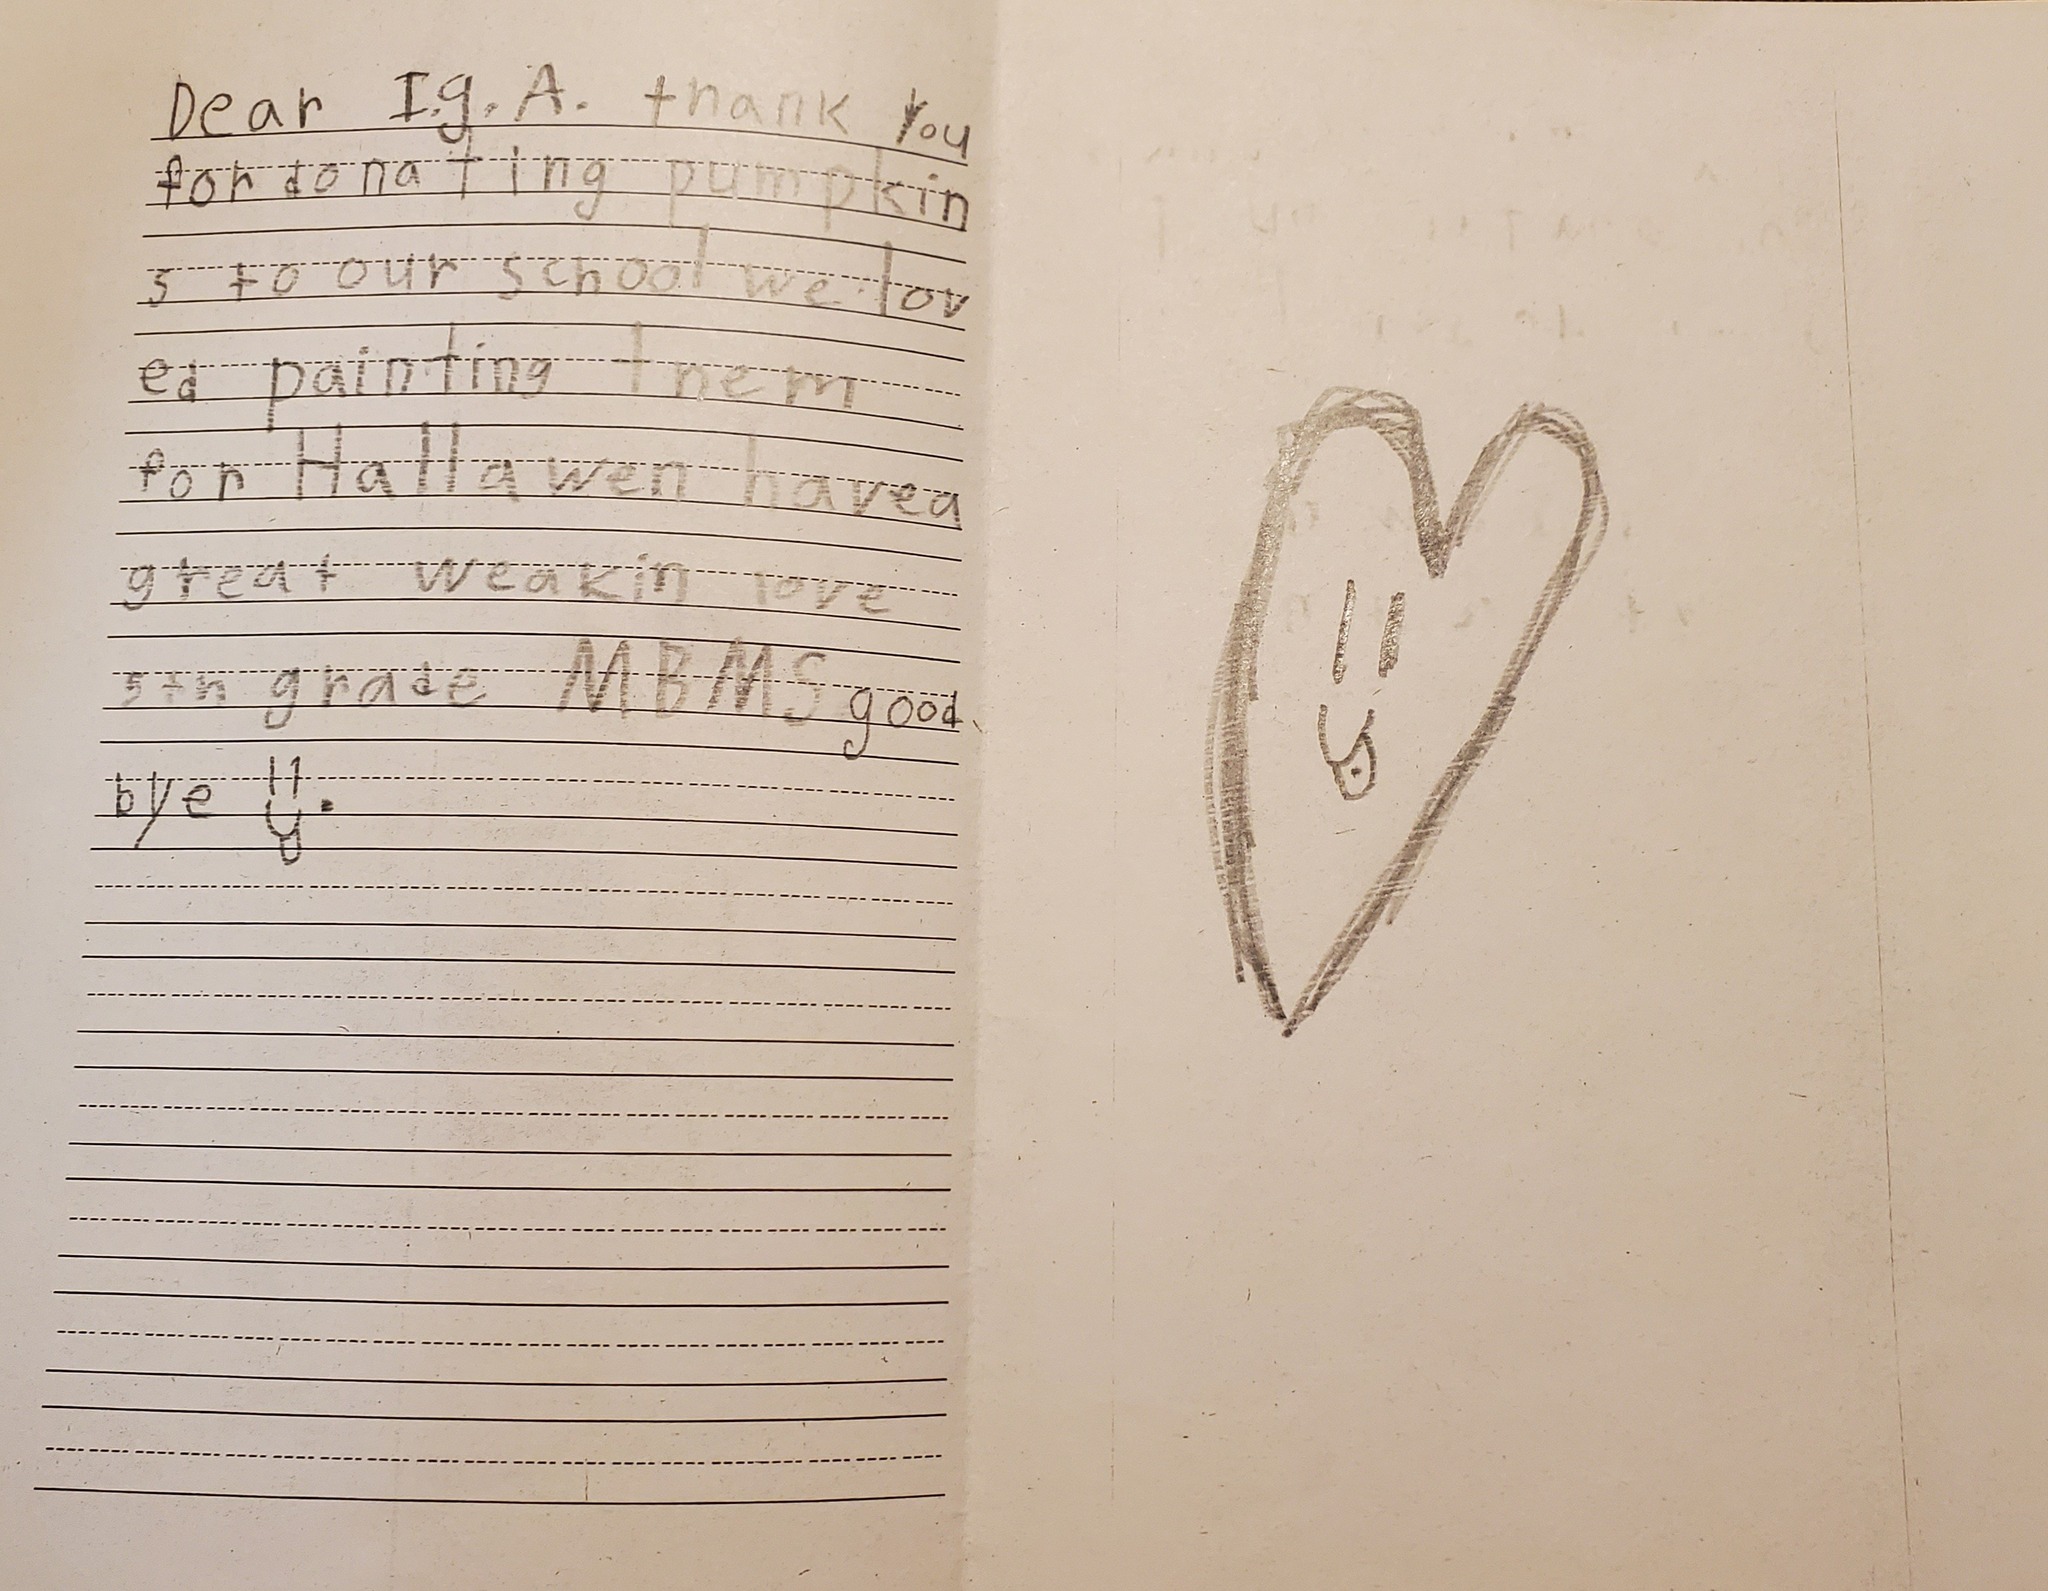 Dear I.g.A. thank you
for donating pumpkin
s to our school we lov
ed painting them
for Hallawen have a
great weakin love
5th grade MBMS good
bye